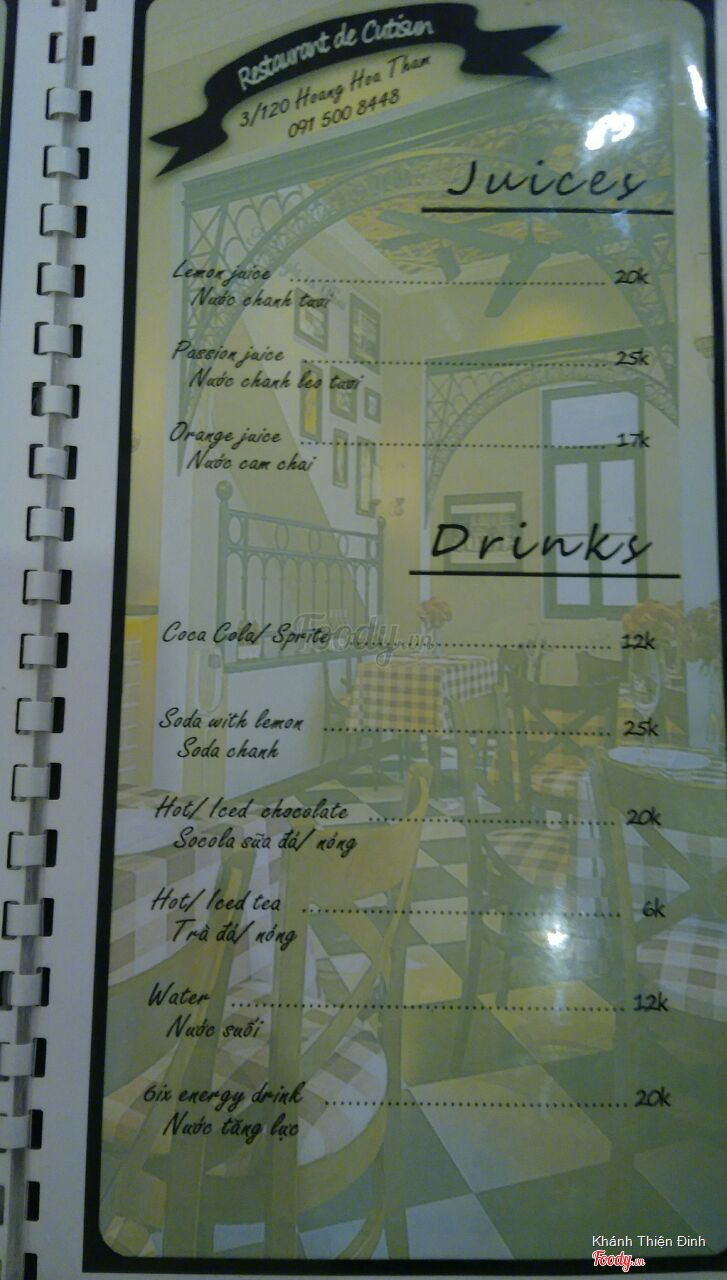 Restaurant de Cutisun
3/120 Hoang Hoa Tham
091 500 8448
Juices
Lemon juice ........ 20k
Nước chanh tươi
Passion juice ........ 25k
Nước chanh leo tươi
Orange juice ........ 17k
Nước cam chai
Drinks
Coca Cola/ Sprite ........ 12k
Foody.vn
Soda with lemon ........ 25k
Soda chanh
Hot/ Iced chocolate ........ 20k
Socola sữa đá/ nóng
Hot/ Iced tea ........ 6k
Trà đá/ nóng
Water ........ 12k
Nước suối
6ix energy drink ........ 20k
Nước tăng lực
Khánh Thiện Đinh
Foody.vn